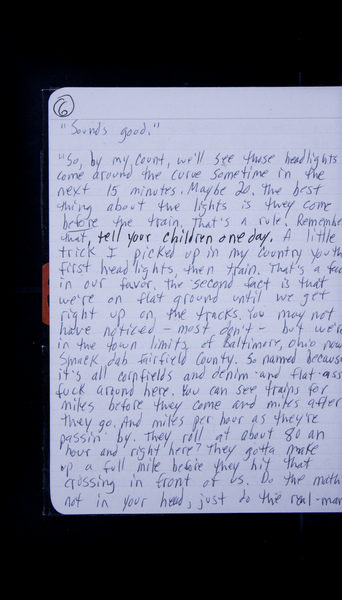 6
"Sounds good."
"So, by my count, we'll see those headlights
come around the curve sometime in the
next 15 minutes. Maybe 20. The best
thing about the lights is they come
before the train. That's a rule. Remember
that, tell your children one day. A little
trick I picked up in my country youth
first headlights, then train. That's a fac
in our favor. The second fact is that
we're on flat ground until we get
right up on the tracks. You may not
have noticed – most don't – but we're
in the town limits of Baltimore, Ohio now
Smack dab Fairfield County. So named because
it's all cornfields and denim and flat-ass
fuck around here. You can see trains for
miles before they come and miles after
they go. And miles per hour as they're
passin' by. They roll at about 80 an
hour and right here? They gotta make
up a full mile before they hit that
crossing in front of us. Do the math
not in your head, just do the real-man